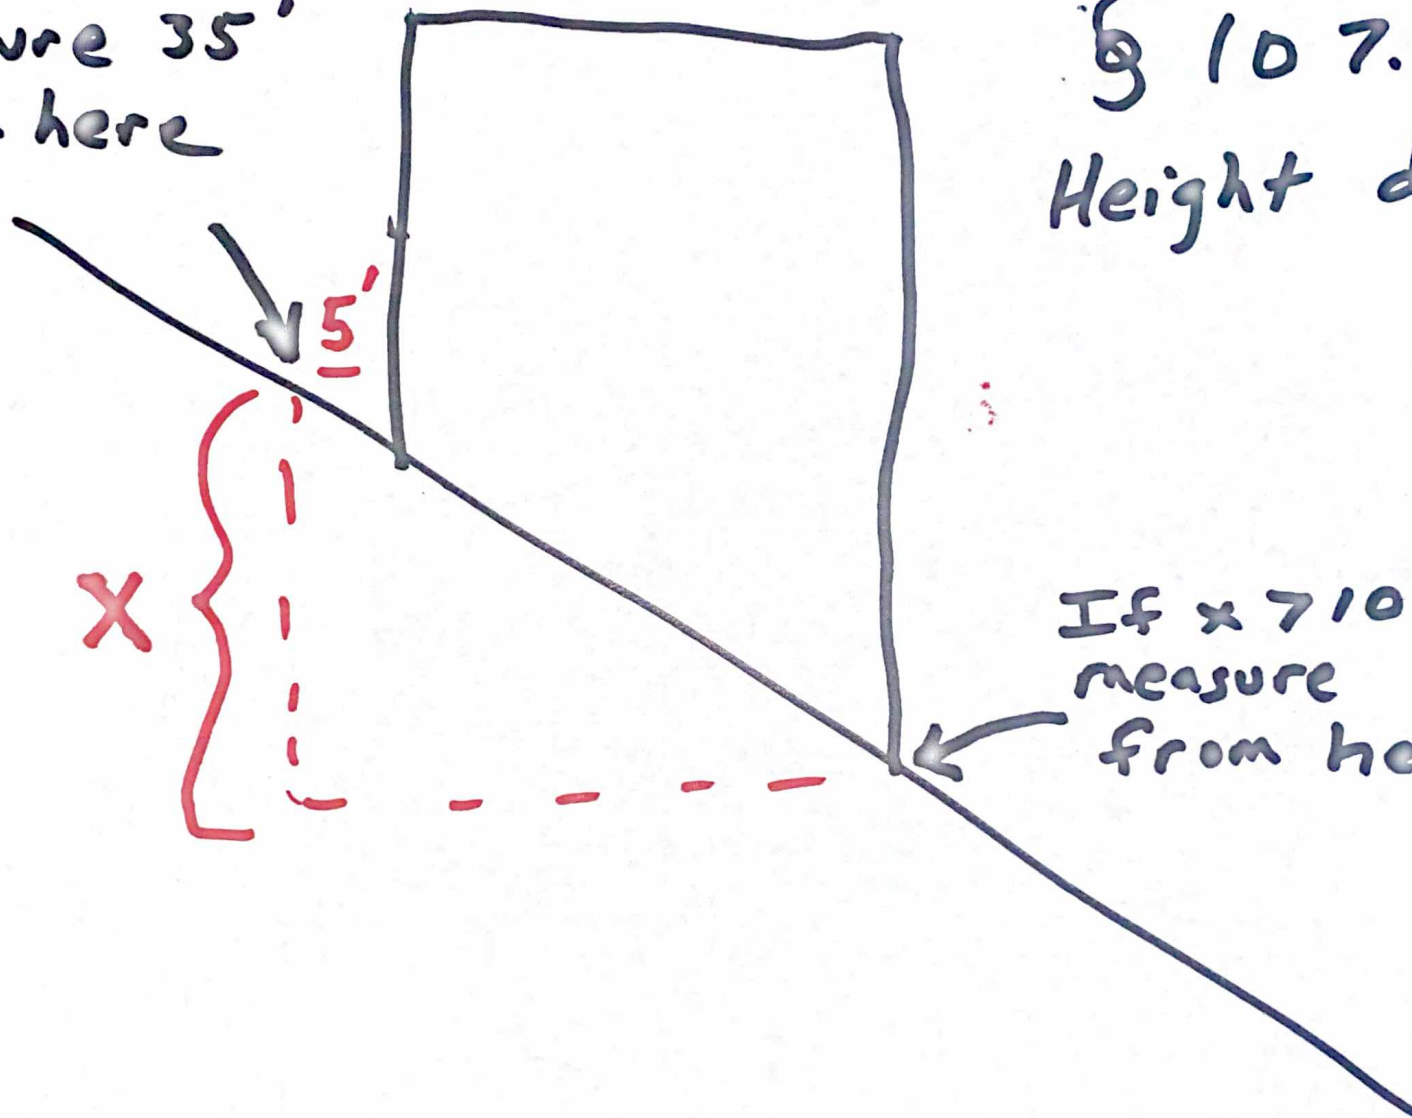 ure 35'
here
§ 107.
Height
5'
X
If x > 10
measure
from